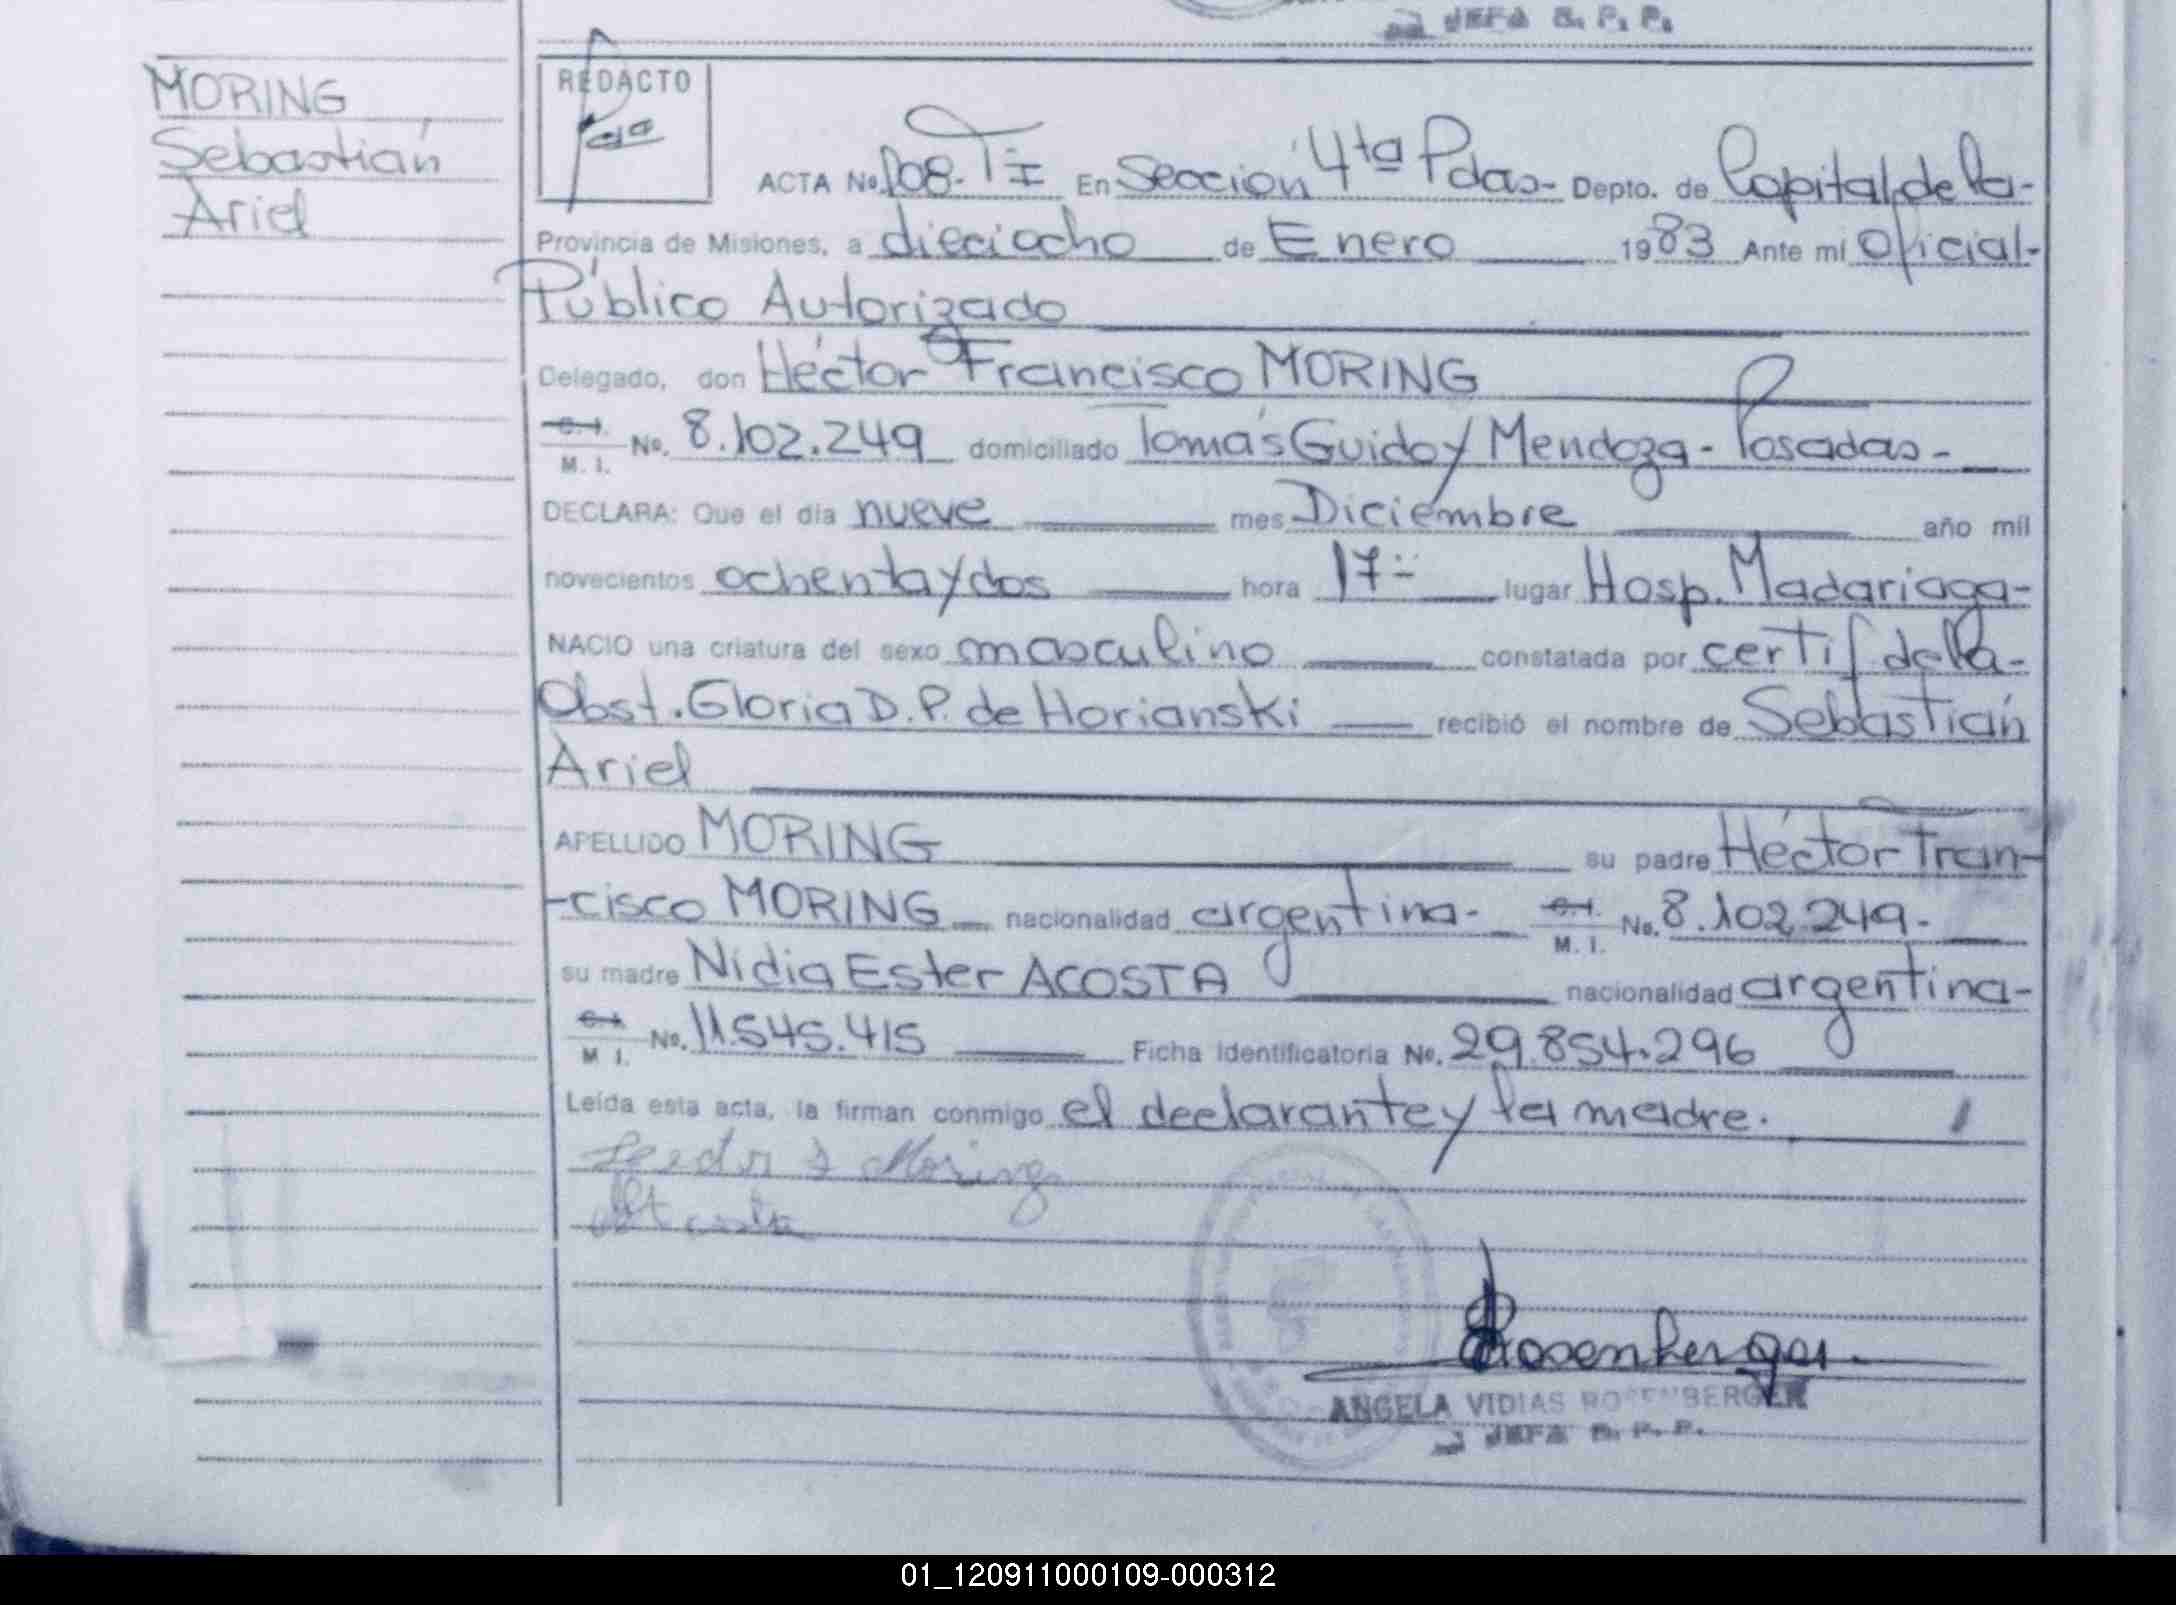 JEFA S. P. P.
MORING
Sebastián
Ariel
REDACTO
ACTA No. 108-T I En Sección 4ta Pdas- Depto. de Capital de la-
Provincia de Misiones, a dieciocho de Enero 1983 Ante mi Oficial-
Público Autorizado
Delegado, don Héctor Francisco MORING
C.I. M. I. No. 8.102.249 domiciliado Tomás Guido y Mendoza- Posadas-
DECLARA: Que el día nueve mes Diciembre año mil
novecientos ochenta y dos hora 17- lugar Hosp. Madariaga-
NACIO una criatura del sexo masculino constatada por certif. de la-
Obst. Gloria D. P. de Horianski recibió el nombre de Sebastián
Ariel
APELLIDO MORING su padre Héctor Fran-
-cisco MORING nacionalidad argentina- C.I. M. I. No. 8.102.249-
su madre Nidia Ester ACOSTA nacionalidad argentina-
C.I. M I. No. 11.545.415 Ficha identificatoria No. 29.854.296
Leída esta acta, la firman conmigo el declarante y la madre.
Hector F Moring
Rosenberger
ANGELA VIDIAS ROSENBERGER
JEFA S. P. P.
01_120911000109-000312